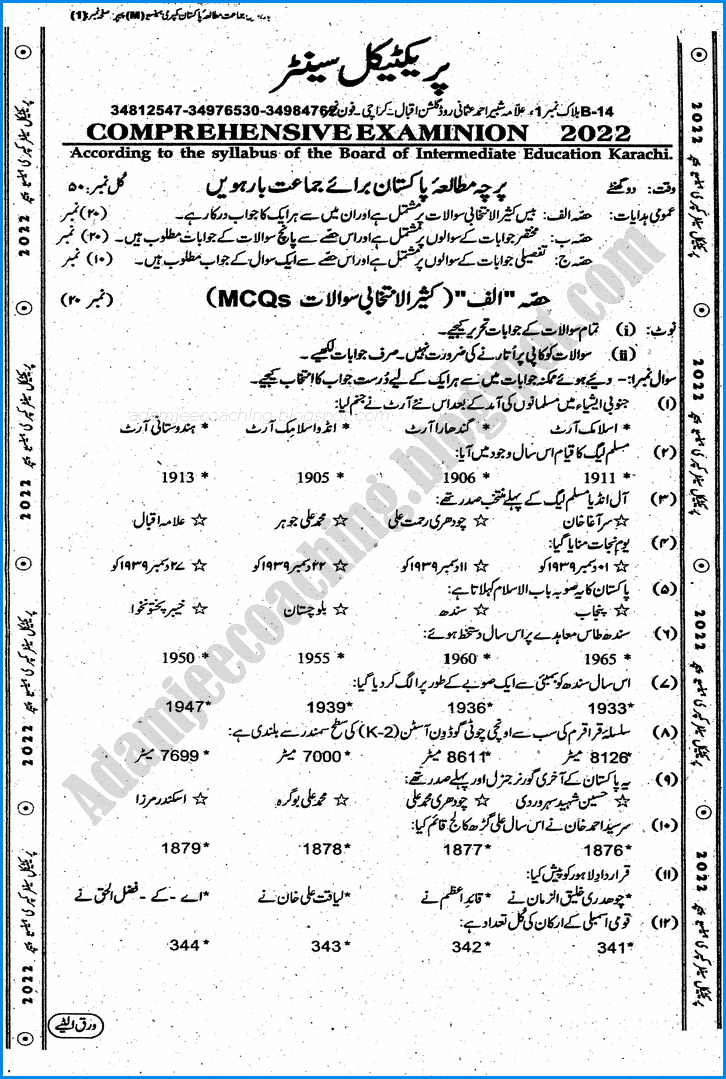 جماعت مطالعۂ پاکستان کمپری ہینسیو (M) پیپر۔ صفحہ نمبر: (1)
پریکٹیکل سینٹر
B-14 بلاک نمبر 1، علامہ شبیر احمد عثمانی روڈ گلشن اقبال - کراچی - فون نمبر 34812547-34976530-34984762
COMPREHENSIVE EXAMINION 2022
According to the syllabus of the Board of Intermediate Education Karachi.
وقت: دو گھنٹے پرچہ مطالعۂ پاکستان برائے جماعت بارہویں کل نمبر: ۵۰
عمومی ہدایات: حصّہ الف: بیس کثیر الانتخابی سوالات پر مشتمل ہے اور ان میں سے ہر ایک کا جواب درکار ہے۔ (۲۰) نمبر
حصّہ ب: مختصر جوابات کے سوالوں پر مشتمل ہے اور اس حصّے سے پانچ سوالات کے جوابات مطلوب ہیں۔ (۲۰) نمبر
حصّہ ج: تفصیلی جوابات کے سوالوں پر مشتمل ہے اور اس حصّے سے ایک سوال کے جواب مطلوب ہیں۔ (۱۰) نمبر
حصّہ "الف" (کثیر الانتخابی سوالات MCQs) (نمبر ۲۰)
نوٹ: (i) تمام سوالات کے جوابات تحریر کیجیے۔
(ii) سوالات کو کاپی پر اُتارنے کی ضرورت نہیں۔ صرف جوابات لکھیے۔
سوال نمبر ۱:- دیئے ہوئے ممکنہ جوابات میں سے ہر ایک کے لیے دُرست جواب کا انتخاب کیجیے۔
(۱) جنوبی ایشیاء میں مسلمانوں کی آمد کے بعد اس نئے آرٹ نے جنم لیا:
* اسلامک آرٹ * گندھارا آرٹ * انڈو اسلامک آرٹ * ہندوستانی آرٹ
(۲) مسلم لیگ کا قیام اس سال وجود میں آیا:
* 1911 * 1906 * 1905 * 1913
(۳) آل انڈیا مسلم لیگ کے پہلے منتخب صدر تھے:
☆ سر آغا خان ☆ چودھری رحمت علی ☆ محمد علی جوہر ☆ علامہ اقبال
(۴) یومِ نجات منایا گیا:
☆ ۰۱ دسمبر ۱۹۳۹ کو ☆ ۱۱ دسمبر ۱۹۳۹ کو ☆ ۲۲ دسمبر ۱۹۳۹ کو ☆ ۲۷ دسمبر ۱۹۳۹ کو
(۵) پاکستان کا یہ صوبہ باب الاسلام کہلاتا ہے:
☆ پنجاب ☆ سندھ ☆ بلوچستان ☆ خیبر پختونخوا
(۶) سندھ طاس معاہدے پر اس سال دستخط ہوئے:
* 1965 * 1960 * 1955 * 1950
(۷) اس سال سندھ کو بمبئی سے ایک صوبے کے طور پر الگ کر دیا گیا:
*1933 *1936 *1939 *1947
(۸) سلسلۂ قراقرم کی سب سے اونچی چوٹی گوڈون آسٹن (K-2) کی سطح سمندر سے بلندی ہے:
* 8126 میٹر * 8611 میٹر * 7000 میٹر * 7699 میٹر
(۹) یہ پاکستان کے آخری گورنر جنرل اور پہلے صدر تھے:
☆ حسین شہید سہروردی ☆ چودھری محمد علی ☆ محمد علی بوگرہ ☆ اسکندر مرزا
(۱۰) سر سید احمد خان نے اس سال علی گڑھ کالج قائم کیا:
*1876 *1877 *1878 *1879
(۱۱) قراردادِ لاہور کو پیش کیا:
*چوھدری خلیق الزمان نے *قائد اعظم نے *لیاقت علی خان نے *اے - کے - فضل الحق نے
(۱۲) قومی اسمبلی کے ارکان کی کُل تعداد ہے:
*341 *342 *343 *344
ورق الٹیے
Adamjeecoaching.blogspot.com
adamjeecoaching.blogspot.com